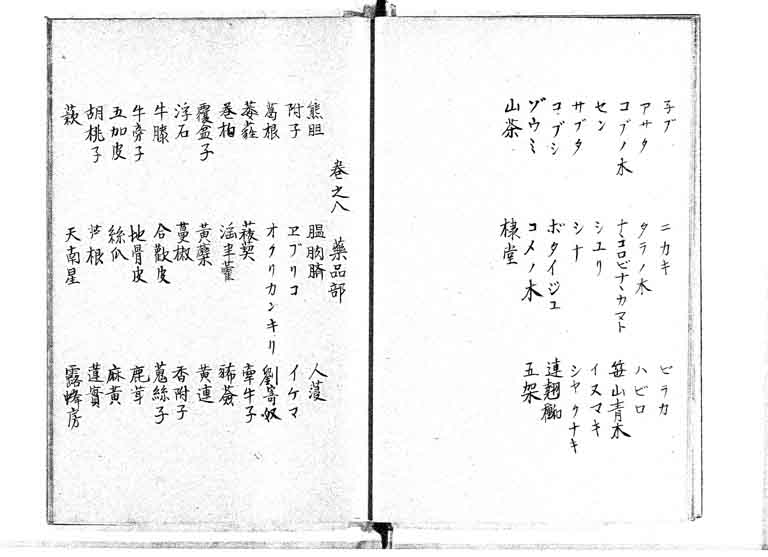 子ブ ニカキ ヒラカ
アサタ タラノ木 ハビロ
コブノ木 ナヽコロビナヽカマト 笹山青木
セン シユリ イヌマキ
サブタ シナ シヤクナキ
コブシ ボタイジユ 連翹
ゾウミ コメノ木 五架
山茶 棣堂
巻之八 薬品部
熊胆 膃肭臍 人蓡
附子 ヱブリコ イケマ
葛根 オクリカンキリ 劉寄奴
菝葜 牽牛子
巻柏 淫羊藿 豨薟
覆盆子 黄蘗 黄連
浮石 蔓椒 香附子
牛膝 合歓皮 菟絲子
牛旁子 地骨皮 鹿茸
五加皮 絲瓜 麻黄
胡桃子 芦根 蓮實
萩 天南星 露蜂房